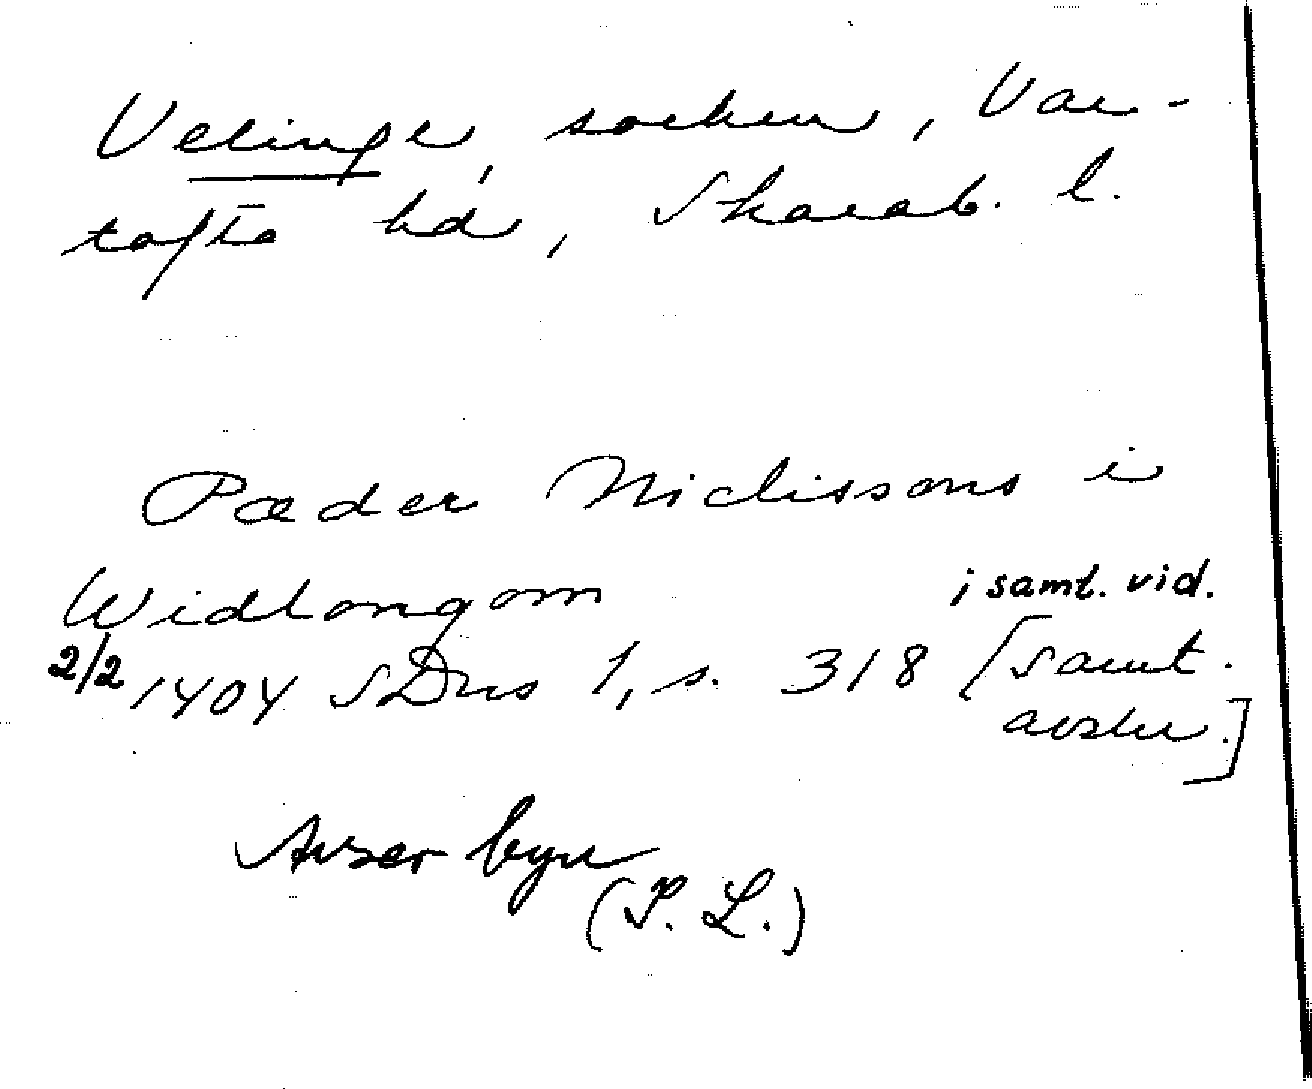 Velinge, socken, Var-
tofta hd, Skarab. l.
Pæder Niclissons i
Widlongom
i samt. vid.
2/2 1404 SDns 1, s. 318 [samt.
avskr.]
Avser byn
(P. L.)